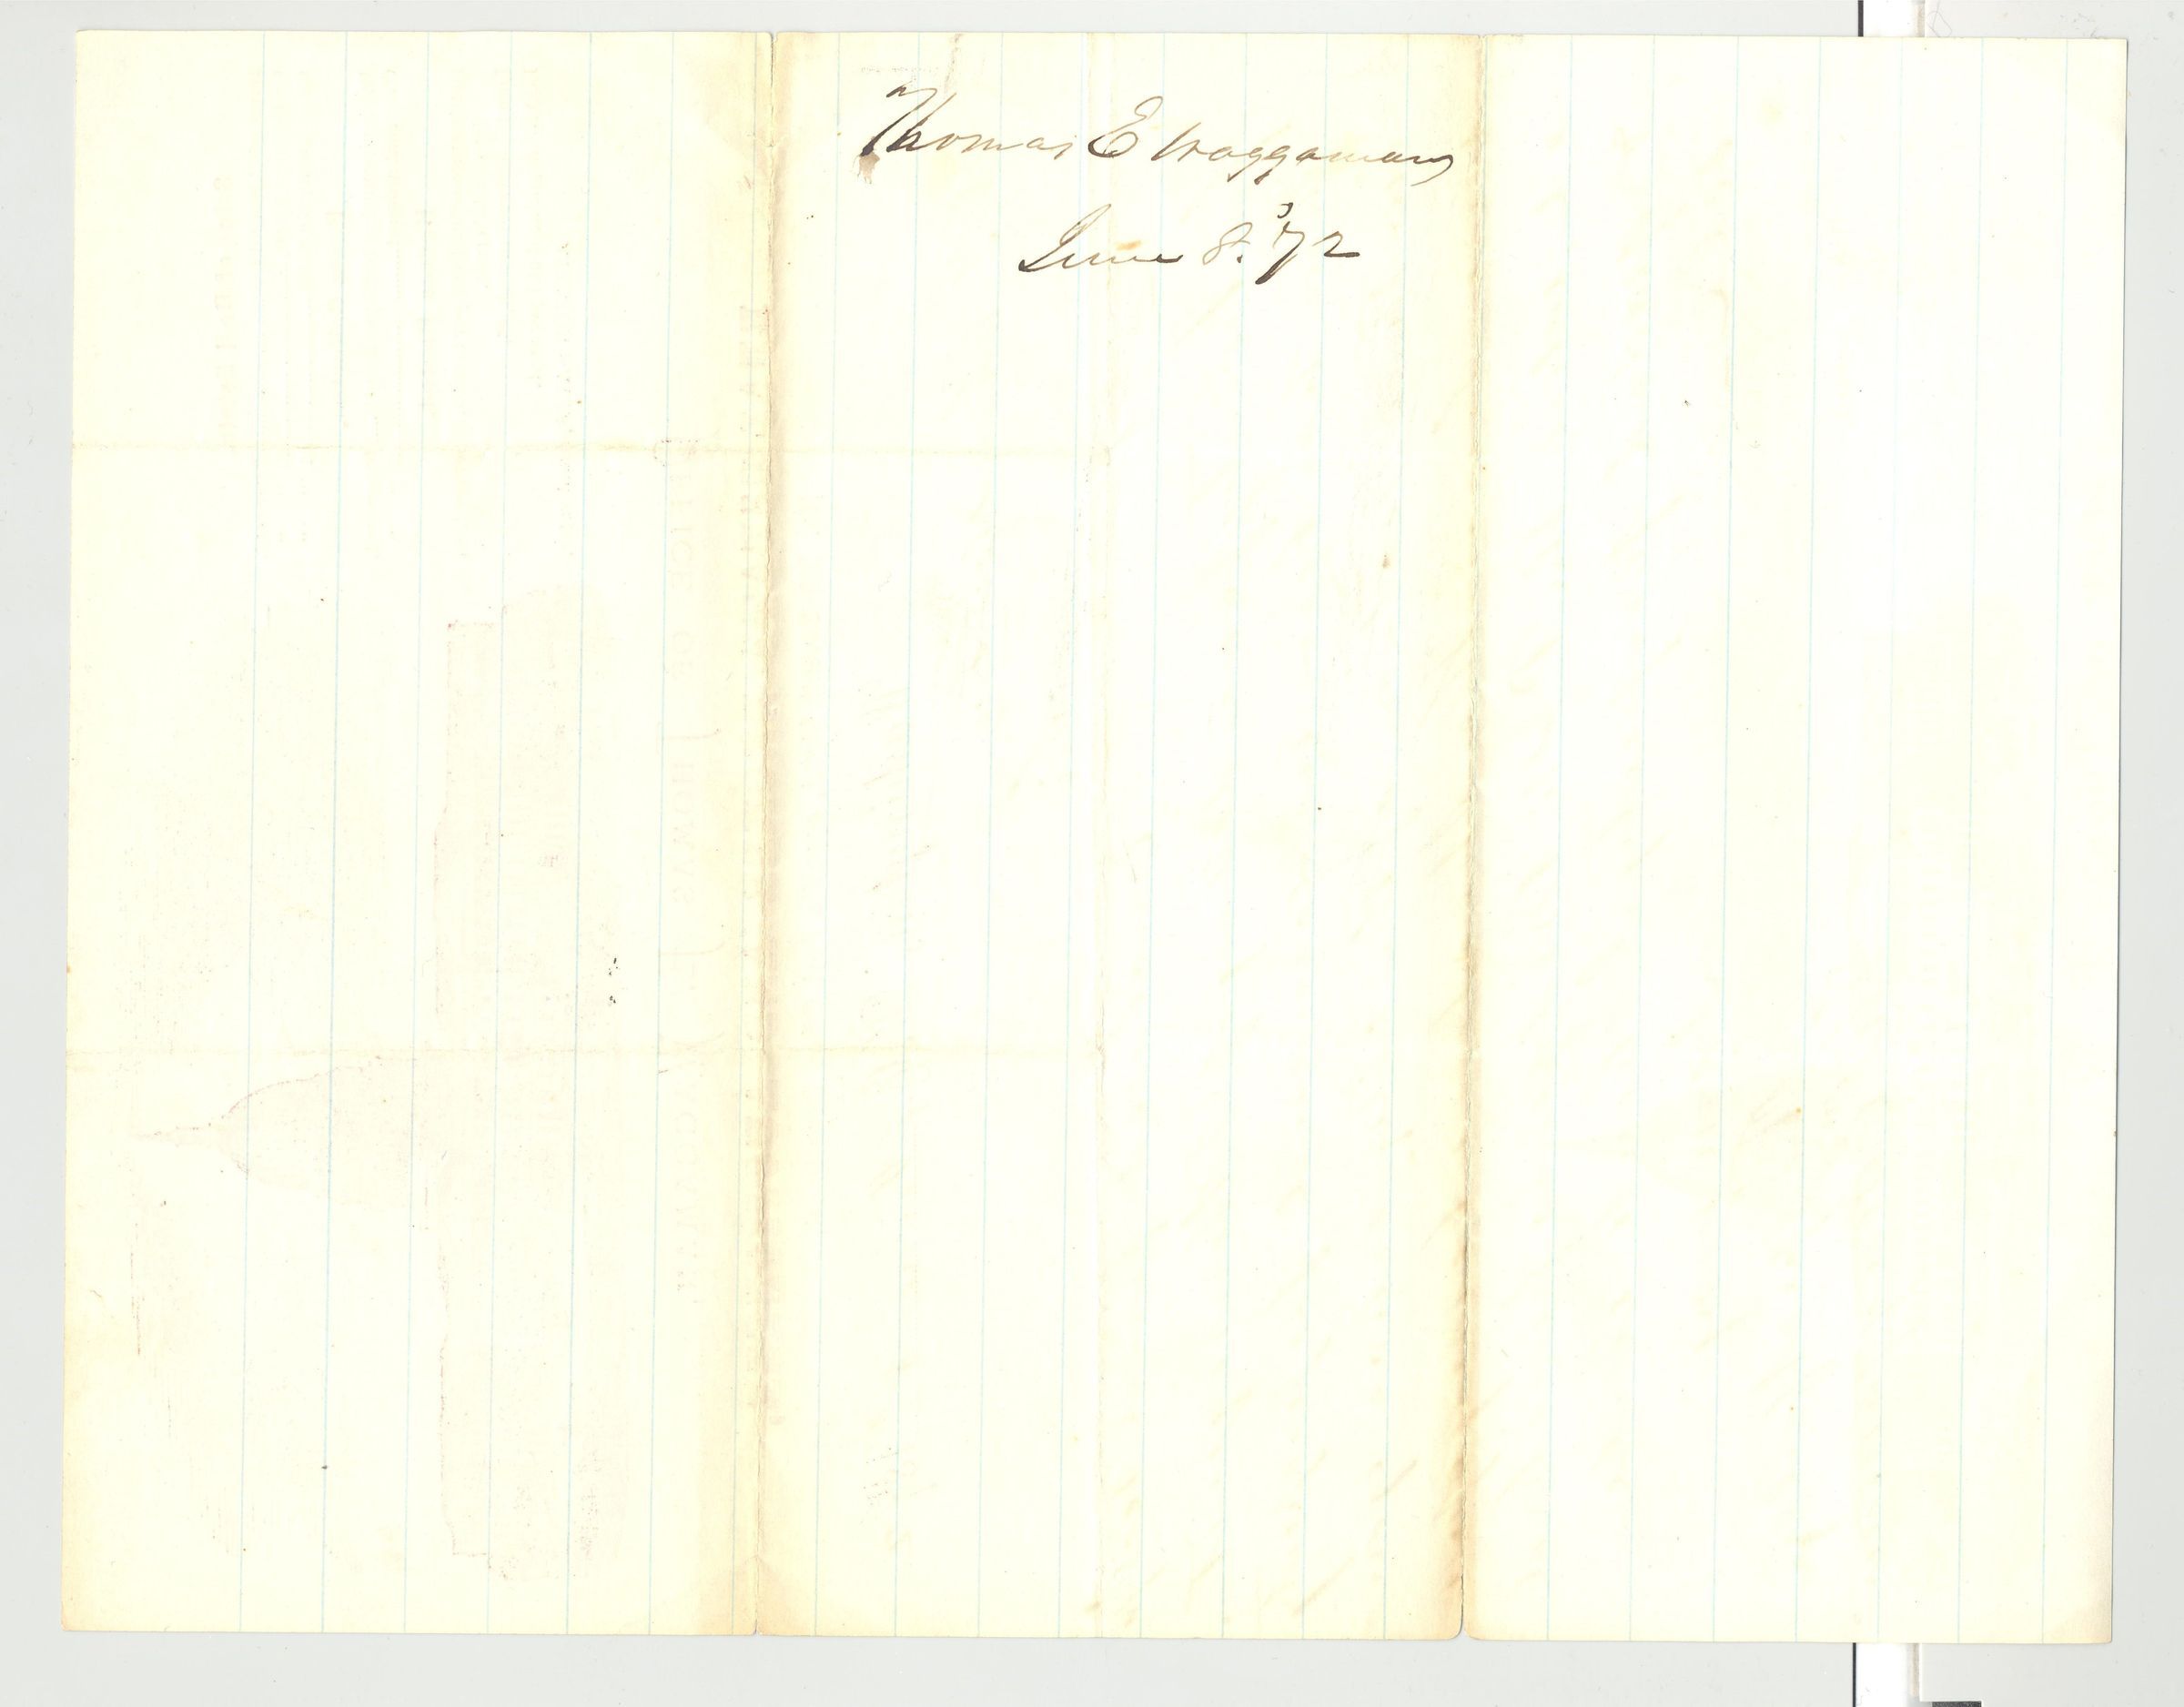 Thomas E Waggaman
June 8. '72